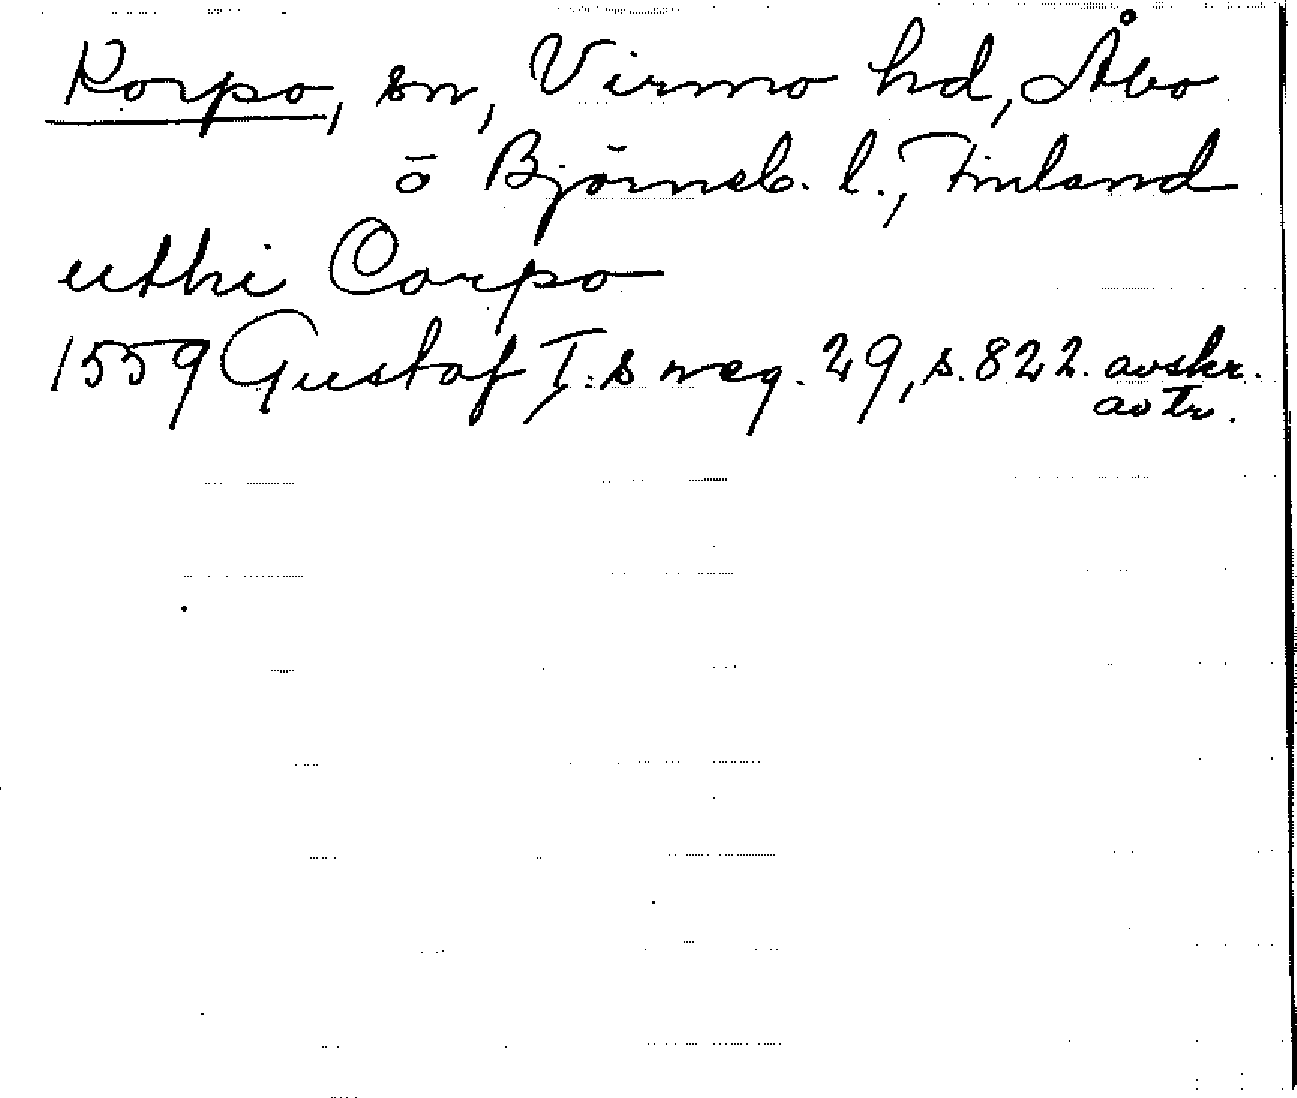 Korpo, sn, Virmo hd, Åbo
o Björneb. l., Finland
uthi Corpo
1559 Gustaf I:s reg. 29, s. 822. avskr.
av tr.